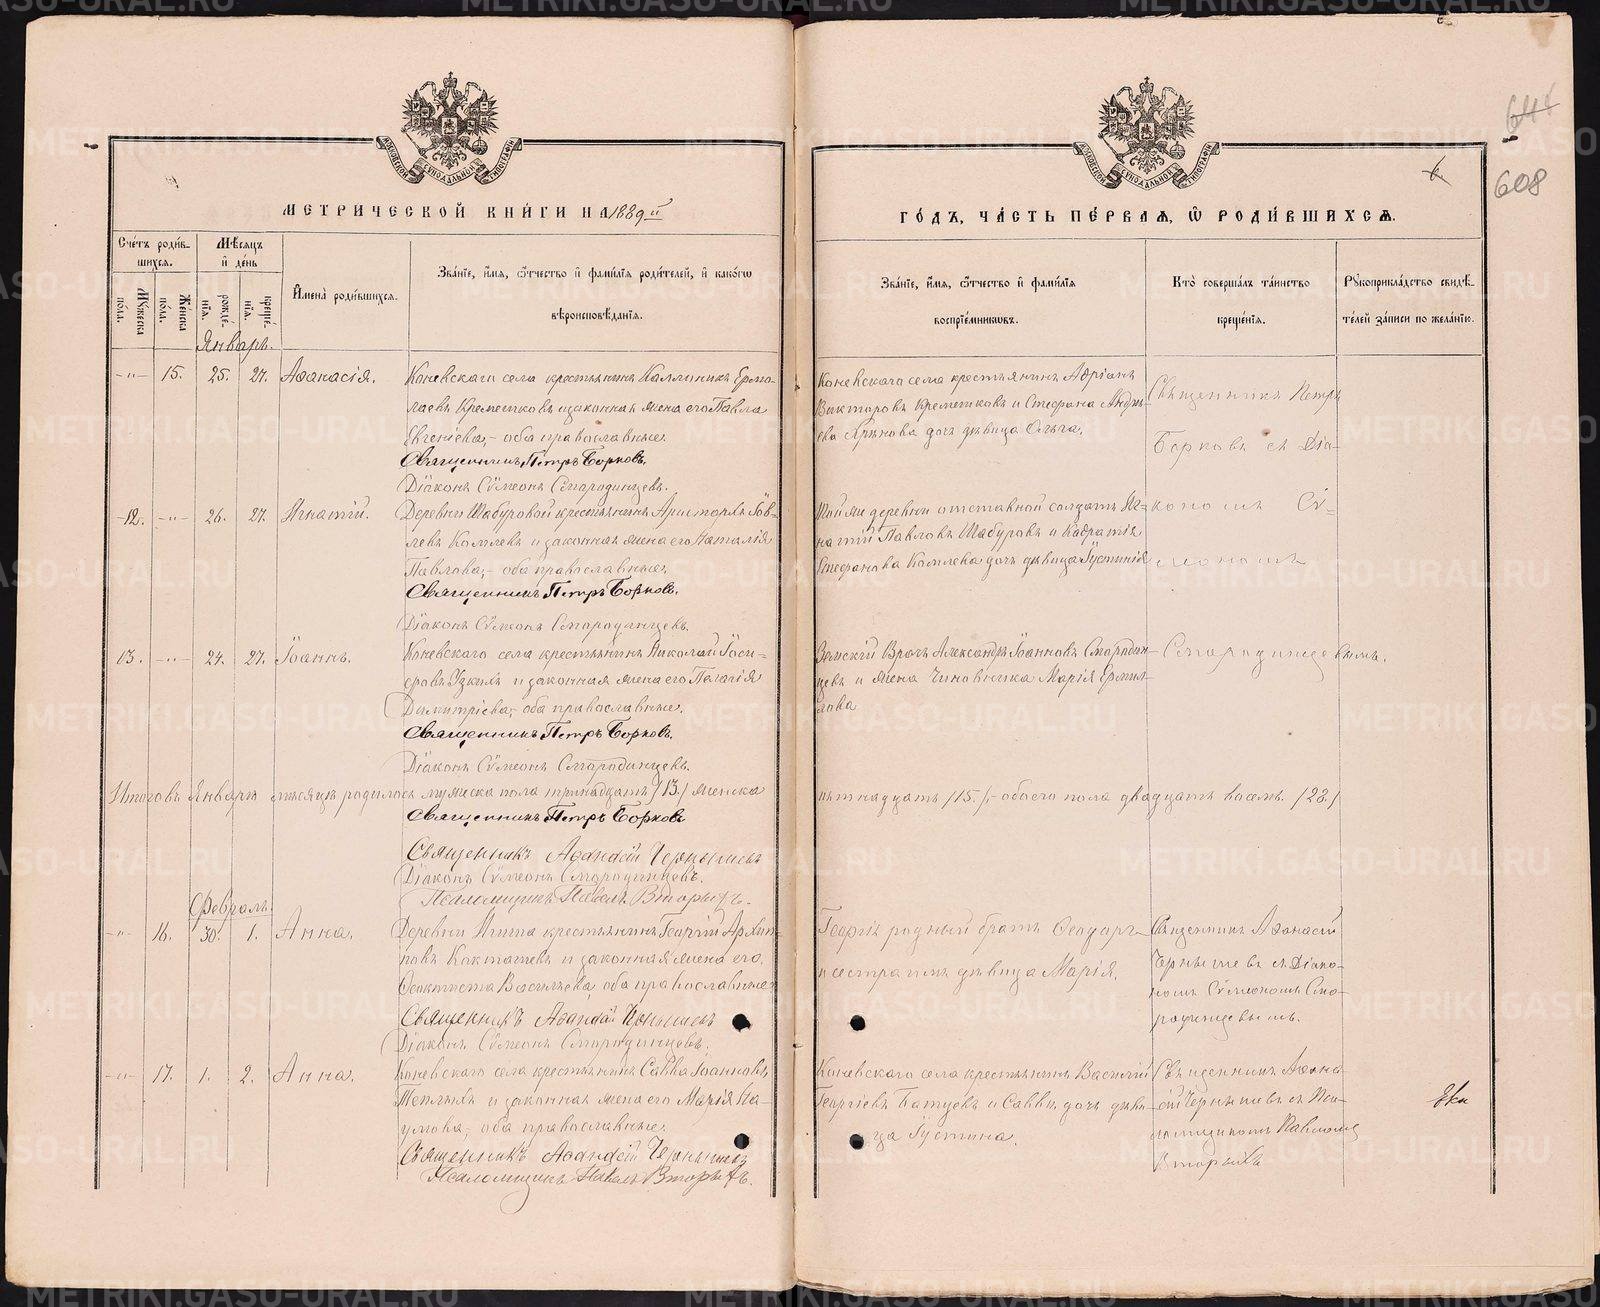 МЕТРИЧЕСКОЙ КНИГИ НА 1889й
ГОДЪ, ЧАСТЬ ПЕРВАЯ, Ѡ РОДИВШИХСЯ.
608
Счетъ родив-
шихся.
Мѣсяцъ
и день
Мужеска
пола.
Женска
пола.
рожде-
нія.
креще-
нія.
Имена родившихся.
Званіе, имя, ѿчество и фамилія родителей, и какогѡ
вѣроисповѣданія.
Званіе, имя, ѿчество и фамилія
воспріемникѡвъ.
Кто совершалъ таинство
крещенія.
Рукоприкладство свидѣ-
телей записи по желанію.
Январь.
-"- 15. 25. 27. Аѳанасія.
Коневскаго села крестьянинъ Каллиникъ Ермо-
лаевъ Кремешковъ и законная жена его Павла
Евгеніева,- оба православные.
Священникъ Петръ Борковъ.
Діаконъ Сѵмеонъ Смородинцевъ.
Коневскаго села крестьянинъ Адріанъ
Викторовъ Кремешковъ и Стефана Андре-
ева дочь дѣвица Ольга.
Священникъ Петръ
Борковъ съ Діа-
кономъ Сѵ-
меономъ
Смородинцевымъ.
12. -"- 26. 27. Игнатій.
Деревни Шабуровой крестьянинъ Аристархъ Іов-
левъ Комлевъ и законная жена его Наталія
Павлова,- оба православные.
Священникъ Петръ Борковъ.
Діаконъ Сѵмеонъ Смородинцевъ.
Той же деревни отставной солдатъ Иг-
натій Павловъ Шабуровъ и Кодратія
Стефанова Комлева дочь дѣвица Іустинія
13. -"- 24. 27. Іоаннъ.
Коневскаго села крестьянинъ Николай Іоси-
фовъ Узкихъ и законная жена его Пелагія
Димитріева,- оба православные.
Священникъ Петръ Борковъ.
Діаконъ Сѵмеонъ Смородинцевъ.
Земскій Врачъ Александръ Іоанновъ Смородин-
цевъ и жена Чиновника Марія Ермил-
лова
Итого въ Январѣ мѣсяцѣ родилось мужеска пола тринадцать /13/ женска
пятнадцать /15./,- обоего пола двадцать восемь. /28./
Священникъ Петръ Борковъ
Священникъ Аѳанасій Чернышевъ
Діаконъ Сѵмеонъ Смородинцевъ.
Псаломщикъ Павелъ Вторыхъ.
Февраль.
-"- 16. 30. 1. Анна.
Деревни крестьянинъ Георгій Архип-
повъ и законная жена его
Ѳеоктиста Васильева, оба православные.
Священникъ Аѳанасій Чернышевъ
Діаконъ Сѵмеонъ Смородинцевъ.
Георгія родный братъ Ѳеодоръ
и сестра имъ дѣвица Марія.
Священникъ Аѳанасій
Чернышевъ съ Діако-
номъ Сѵмеономъ Смо-
родинцевымъ.
-"- 17. 1. 2. Анна.
Коневскаго села крестьянинъ Савва Іоанновъ
Теплыхъ и законная жена его Марія На-
умова,- оба православные.
Священникъ Аѳанасій Чернышевъ
Псаломщикъ Павелъ Вторыхъ.
Коневскаго села крестьянинъ Василій
Георгіевъ Батуевъ и Саввы дочь дѣви-
ца Іустина.
Священникъ Аѳана-
сій Чернышевъ съ Пса-
ломщикомъ Павломъ
Вторыхъ
METRIKI.GASO-URAL.RU